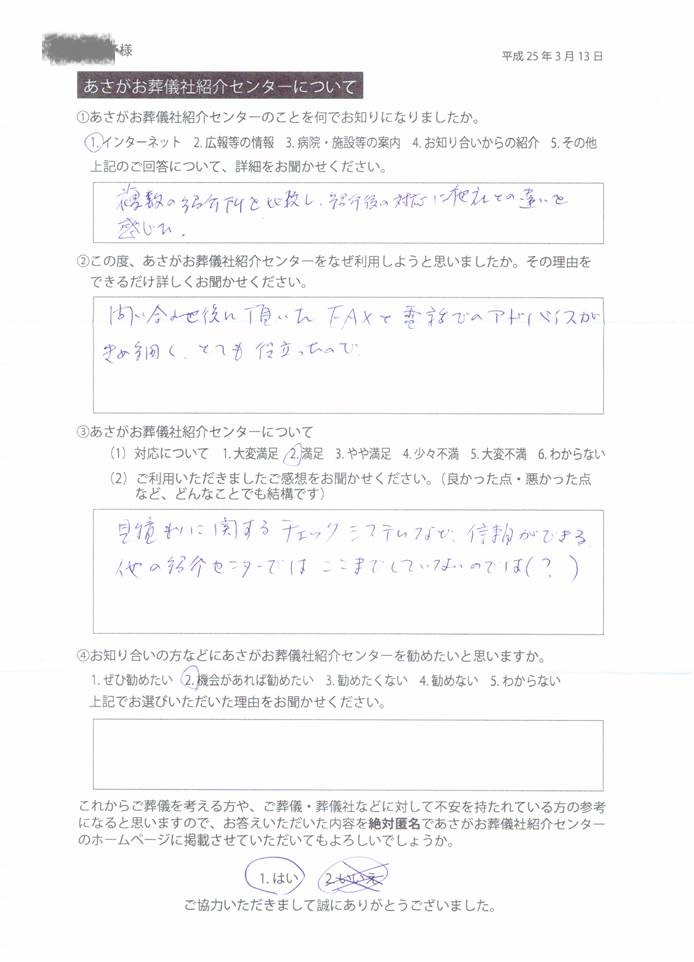 様
平成25年3月13日
あさがお葬儀社紹介センターについて
①あさがお葬儀社紹介センターのことを何でお知りになりましたか。
1.インターネット 2.広報等の情報 3.病院・施設等の案内 4.お知り合いからの紹介 5.その他
上記のご回答について、詳細をお聞かせください。
複数の紹介所を比較し、紹介後の対応に他社との違いを
感じた。
②この度、あさがお葬儀社紹介センターをなぜ利用しようと思いましたか。その理由を
できるだけ詳しくお聞かせください。
問い合わせ後に頂いたFAXと電話でのアドバイスが
きめ細く、とても役立ったので
③あさがお葬儀社紹介センターについて
(1) 対応について 1.大変満足 2.満足 3.やや満足 4.少々不満 5.大変不満 6.わからない
(2) ご利用いただきましたご感想をお聞かせください。(良かった点・悪かった点
など、どんなことでも結構です)
見積りに関するチェックシステムなど、信頼ができる
他の紹介センターではここまでしていないのでは(?)
④お知り合いの方などにあさがお葬儀社紹介センターを勧めたいと思いますか。
1.ぜひ勧めたい 2.機会があれば勧めたい 3.勧めたくない 4.勧めない 5.わからない
上記でお選びいただいた理由をお聞かせください。
これからご葬儀を考える方や、ご葬儀・葬儀社などに対して不安を持たれている方の参考
になると思いますので、お答えいただいた内容を絶対匿名であさがお葬儀社紹介センター
のホームページに掲載させていただいてもよろしいでしょうか。
1.はい 2.いいえ
ご協力いただきまして誠にありがとうございました。